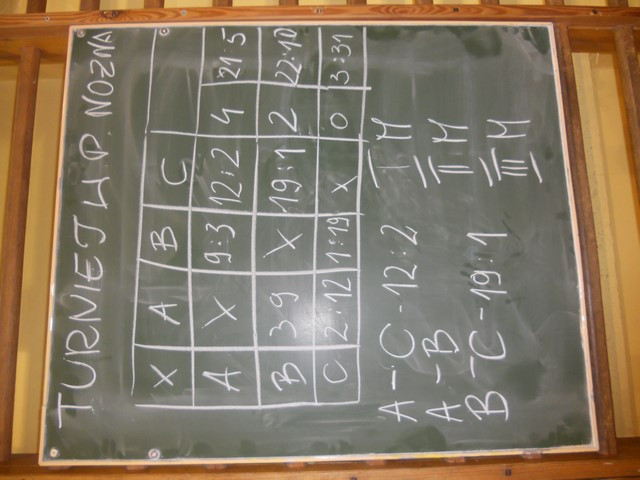 TURNIEJ W P. NOZNA
X A B C
A X 9:3 12:2 4 21:5
B 3 9 X 19:1 2 22:10
C 2:12 1:19 X 0 3:31
A - C - 12:2 I M
A - B II M
B - C - 19:1 III M